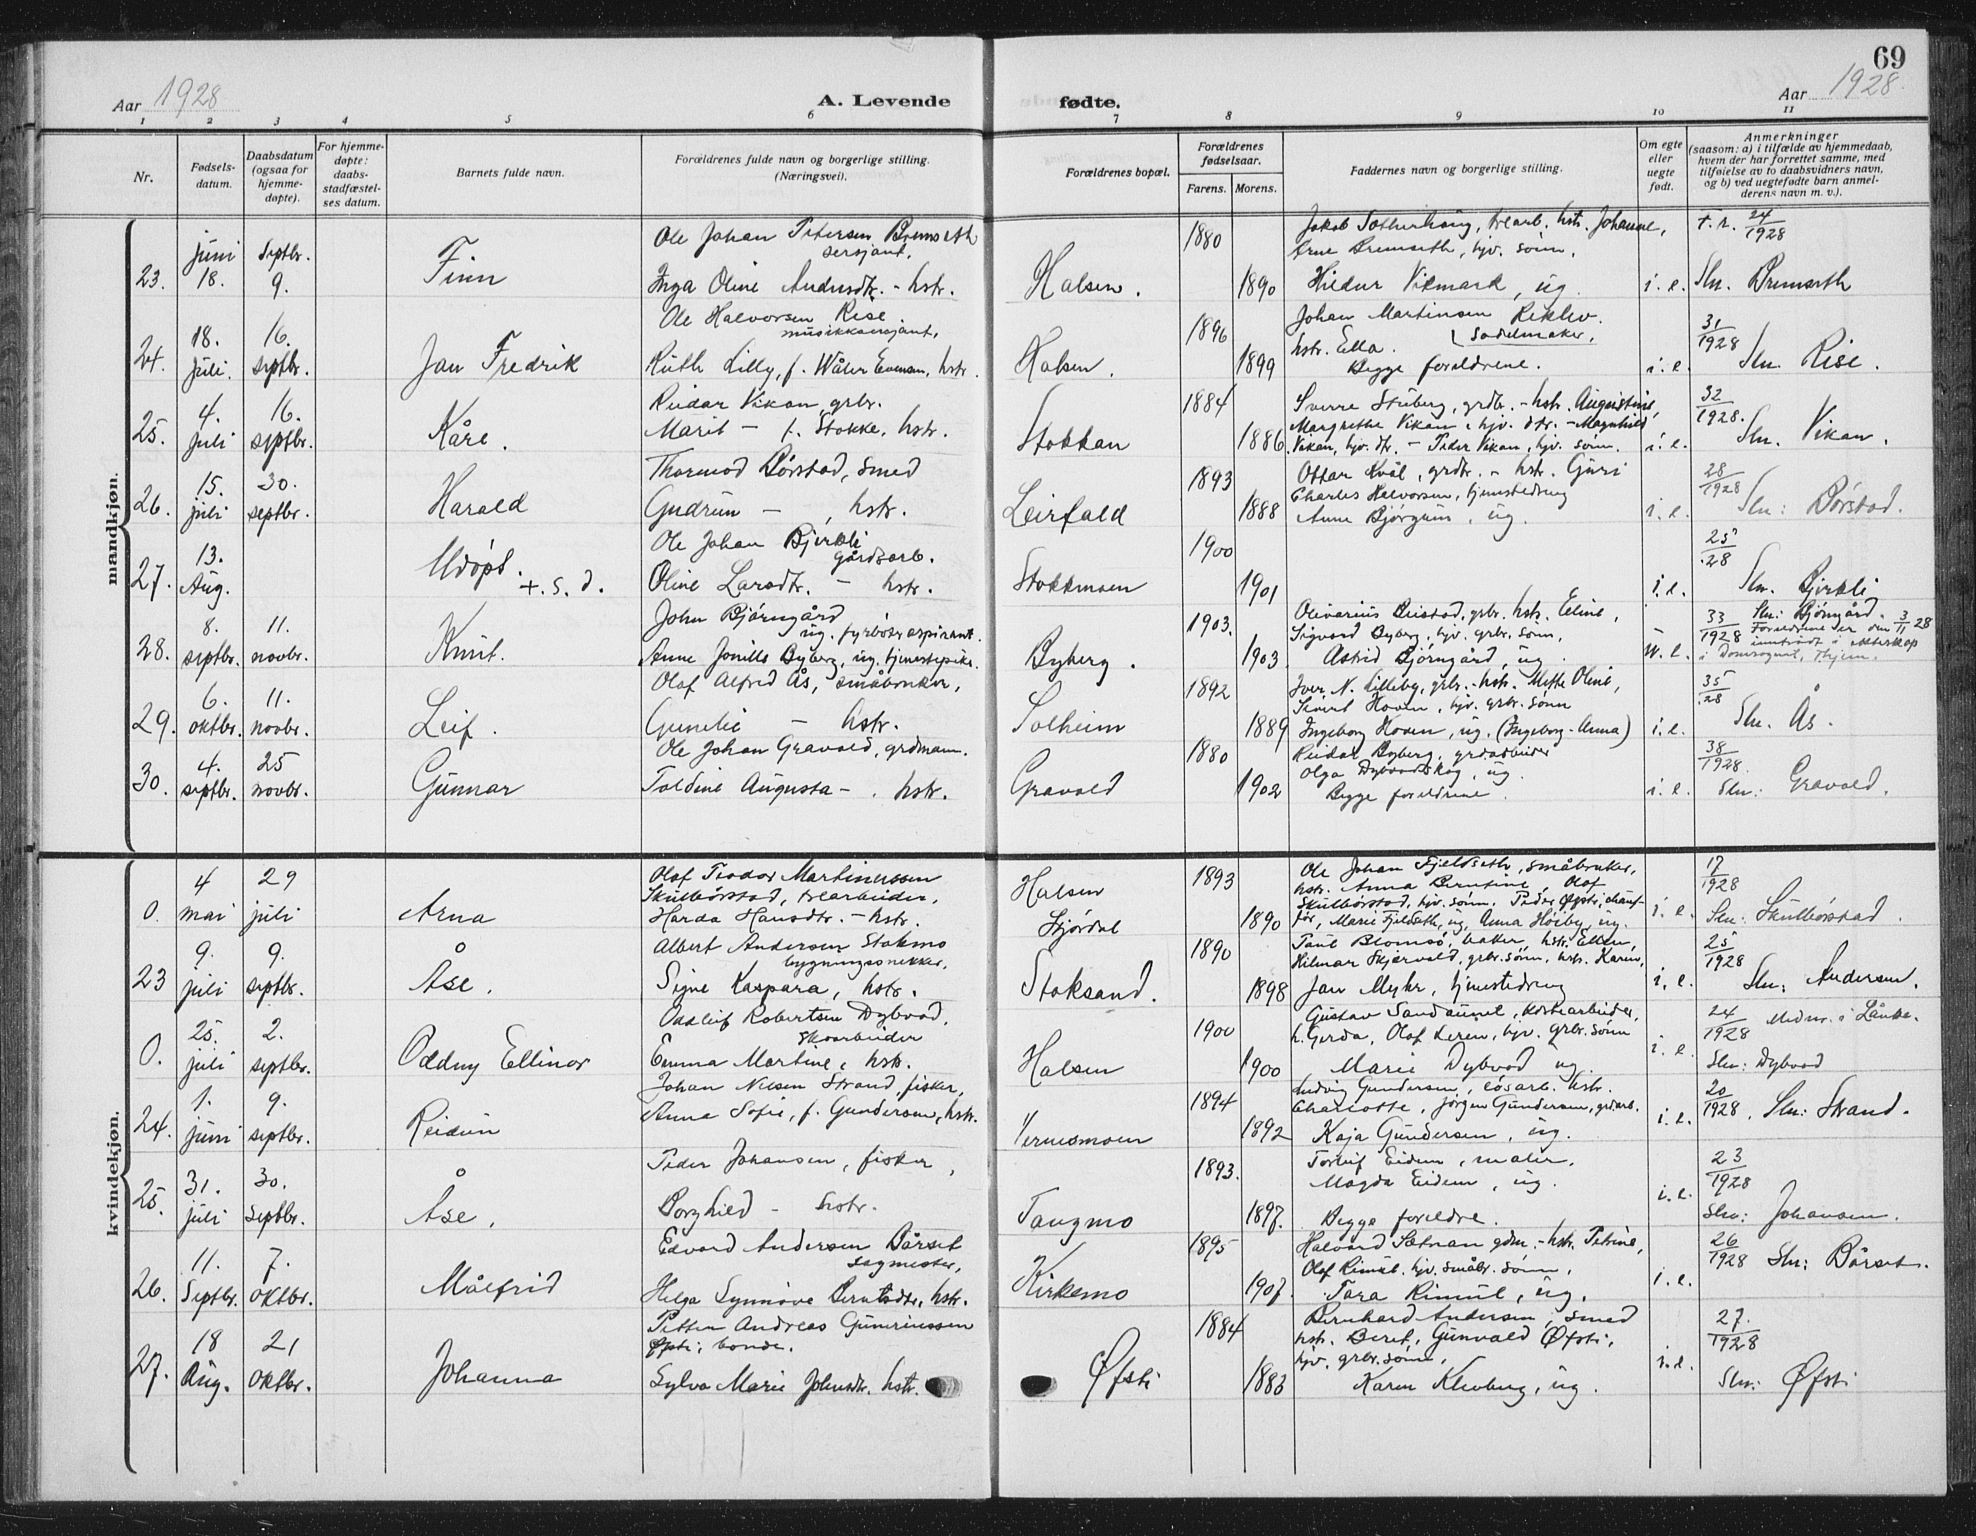 69
Aar 1928
A. Levende
fødte.
Aar 1928
1 2 3 4 5 6 7 8 9 10 11
Nr.
Fødsels-
datum.
Daabsdatum
(ogsaa for
hjemme-
døpte).
For hjemme-
døpte:
daabs-
stadfæstel-
ses datum.
Barnets fulde navn.
Forældrenes fulde navn og borgerlige stilling.
(Næringsvei).
Forældrenes bopæl.
Forældrenes
fødselsaar.
Farens. Morens.
Faddernes navn og borgerlige stilling.
Om egte
eller
uegte
født.
Anmerkninger
(saasom: a) i tilfælde av hjemmedaab,
hvem der har forrettet samme, med
tilføielse av to daabsvidners navn,
og b) ved uegtefødte barn anmel-
derens navn m. v.).
mandkjøn.
23. juni 18. septbr. 9.
Finn
Ole Johan Petersen Bremseth
sersjant.
Inga Oline Andersdtr. - hstr.
Halsen.
1880
1890
hstr. Johanne,
Arne Bremseth, hjv. sønn.
Hildur Vikmark, ug.
i. e.
t. r. 24/1928
Sln. Bremseth
24. 18. juli. 16. septbr.
Jan Fredrik
Ole Halvorsen Rise
musikksersjant,
Ruth Lilly, f. Wåler Evensen, hstr.
Halsen.
1896
1899
Johan Martinsen Reklev.
hstr. Ella. Sadelmaker.
Begge foreldrene.
i. e.
31/1928
Sln. Rise.
25. 4. juli 16. septbr.
Kåre.
Reidar Vikan, grbr.
Marit - f. Stokke, hstr.
Stokkan
1884
1886
Sverre Stuberg, grdbr. - hstr. Augustine,
Margrethe Vikan, hjv. dtr. - Magnhild
Vikan, hjv. dtr. - Peder Vikan, hjv. sønn.
i. e.
32/1928.
Sln. Vikan.
26. 15. juli 30. septbr.
Harald
Thormod Børstad, smed
Gudrun - , hstr.
Leirfald
1893
1888
Ottar Kvål, grdbr. - hstr. Guri
Charles Halvorsen, tjenestedreng
Anne Bjørgum, ug.
i. e.
28/1928
Sln: Børstad.
27. 13. Aug.
Udøpt. + s. d.
Ole Johan Bjerkli
gårdsarb.
Oline Larsdtr. - hstr.
Stokkmoen
1900
1901
i. e.
25/28
Sln. Bjerkli
28. 8. septbr. 11. novbr.
Knut.
John Bjørngård
ug. fyrbøteraspirant.
Anne Jonille Byberg, ug. tjenestepike.
Byberg.
1903.
1903
Olivarius Beistad, grbr. hstr. Eline,
Sigvard Byberg, hjv. grbr. sønn,
Astrid Bjørngård, ug.
u. e.
33/1928 Sln: Bjørngård.
Foreldrene er den 3/11 28
inntrådt i ekteskap
i Domsognet, Thjem.
29. 6. oktbr. 11. novbr.
Leif.
Olaf Alfred Ås, småbruker,
Gunelie - hstr.
Solheim
1892
1889
Iver N. Lilleby, grbr. - hstr. Mette Oline,
Sivert Hoven, hjv. grbr. sønn
Ingeborg Hoven, ug. (Ingeborg-Anna)
i. e.
35/28
Sln. Ås.
30. 4. septbr. 25 novbr.
Gunnar
Ole Johan Gravald, grdmann.
Toldine Augusta - hstr.
Gravald
1880
1902
Reidar Byberg, grdarbeider
Olga Dybvadskog, ug.
Begge foreldrene.
i. e.
38/1928.
Sln: Gravald.
kvindekjøn.
0. 4 mai 29 juli
Arna
Olaf Teodor Martinussen
Skulbørstad, trearbeider,
Harda Hansdtr. - hstr.
Halsen
Stjørdal
1893
1890
Ole Johan Fjeldseth, småbruker,
hstr. Anna Berntine, Olaf
Skulbørstad, hjv. sønn. Peder Øfsti, chauf-
før, Marie Fjeldseth, ug, Anna Høiby, ug.
i. e.
17/1928
Sln: Skulbørstad.
23 9. juli 9. septbr.
Åse.
Albert Andersen Stokmo
bygningssnekker,
Signe Kaspara, hstr.
Stoksand.
1890
1898
Paul Blomsø, baker, hstr. Ellen,
Hilmar Skjervold, grbr. sønn, hstr. Karen,
Jan Myhr, tjenestedreng
i. e.
25/1928
Sln: Andersen.
0. 25. juli 2. septbr.
Oddny Ellinor
Oddleif Robertsen Dybvad,
skoarbeider
Emma Martine, hstr.
Halsen
1900
1900
Gustav Sandaunet,
h. Gerda, Olaf Leren, hjv. grbr. sønn
Marie Dybvad ug.
i. e.
24/1928 Medm. i Lånke.
Sln: Dybvad
24. 1. juni 9. septbr.
Reidun
Johan Nilsen Strand, fisker,
Anna Sofie, f. Gundersen, hstr.
Vernesmoen
1894
1892
Ludvig Gundersen, løsarb. hstr.
Charlotte, Jørgen Gundersen, grdarb.
Kaja Gundersen, ug.
i. e.
20/1928. Sln: Strand.
25. 31. juli 30. septbr.
Åse.
Peder Johansen, fisker,
Borghild - hstr.
Tangmo
1893.
1897.
Torleif Eidem, maler.
Magda Eidem, ug.
Begge foreldre.
i. e.
23/1928
Sln: Johansen.
26. 11. Septbr. 7. oktbr.
Målfrid
Edvard Andersen Bårset
sagmester,
Helga Synnøve Berntsdtr, hstr.
Kirkemo
1895
1907.
Halvard Sætnan gdm. - hstr. Petrine,
Olaf Rimul. hjv. småbr. sønn,
Tora Rimul, ug.
i. e.
26/1928 Sln: Bårset.
27. 18 Aug. 21 oktbr.
Johanna
Petter Andreas Guneriussen
Øfsti, bonde.
Sylva Marie Johnsdtr. hstr.
Øfsti
1884
1883
Bernhard Andersen, smed
hstr. Beret, Gunvald Øfsti,
hjv. grbr. sønn,
Karen Kleivberg, ug.
i. e.
27./1928
Sln: Øfsti